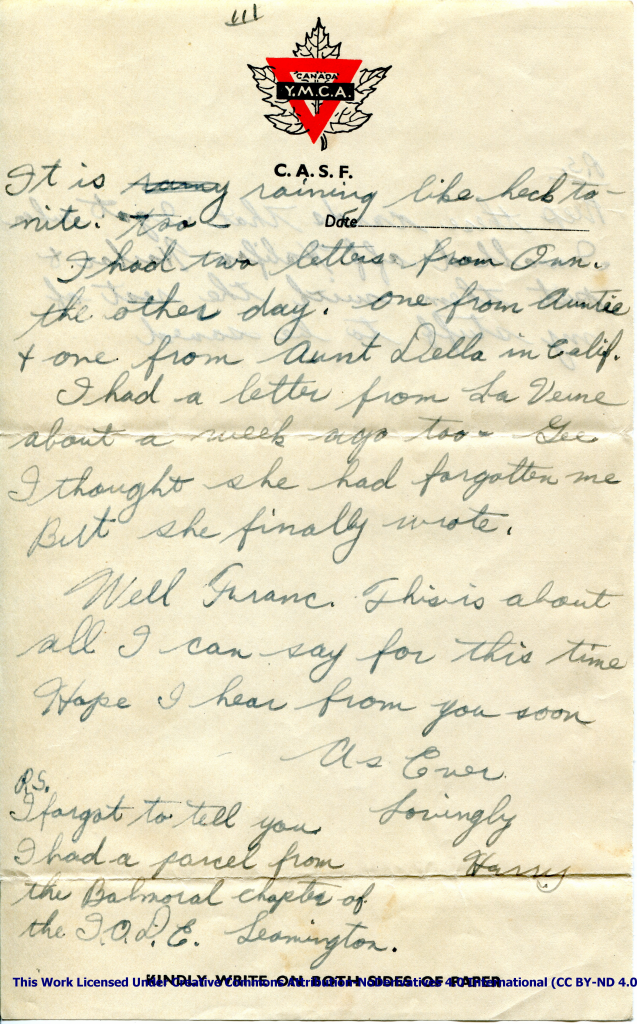 III
CANADA
Y.M.C.A.
C.A.S.F.
It is rainy raining like heck to-
nite. too-
Date
I had two letters from Onn.
the other day. One from Auntie
+ one from Aunt Della in Calif.
I had a letter from La Verne
about a week ago too- Gee
I thought she had forgotten me
But she finally wrote.
Well Franc. This is about
all I can say for this time
Hope I hear from you soon
As Ever
Lovingly
Harry
P.S.
I forgot to tell you
I had a parcel from
the Balmoral chapter of
the I.O.D.E. Leamington.
KINDLY WRITE ON BOTH SIDES OF PAPER
This Work Licensed Under Creative Commons Attribution-NoDerivatives 4.0 International (CC BY-ND 4.0